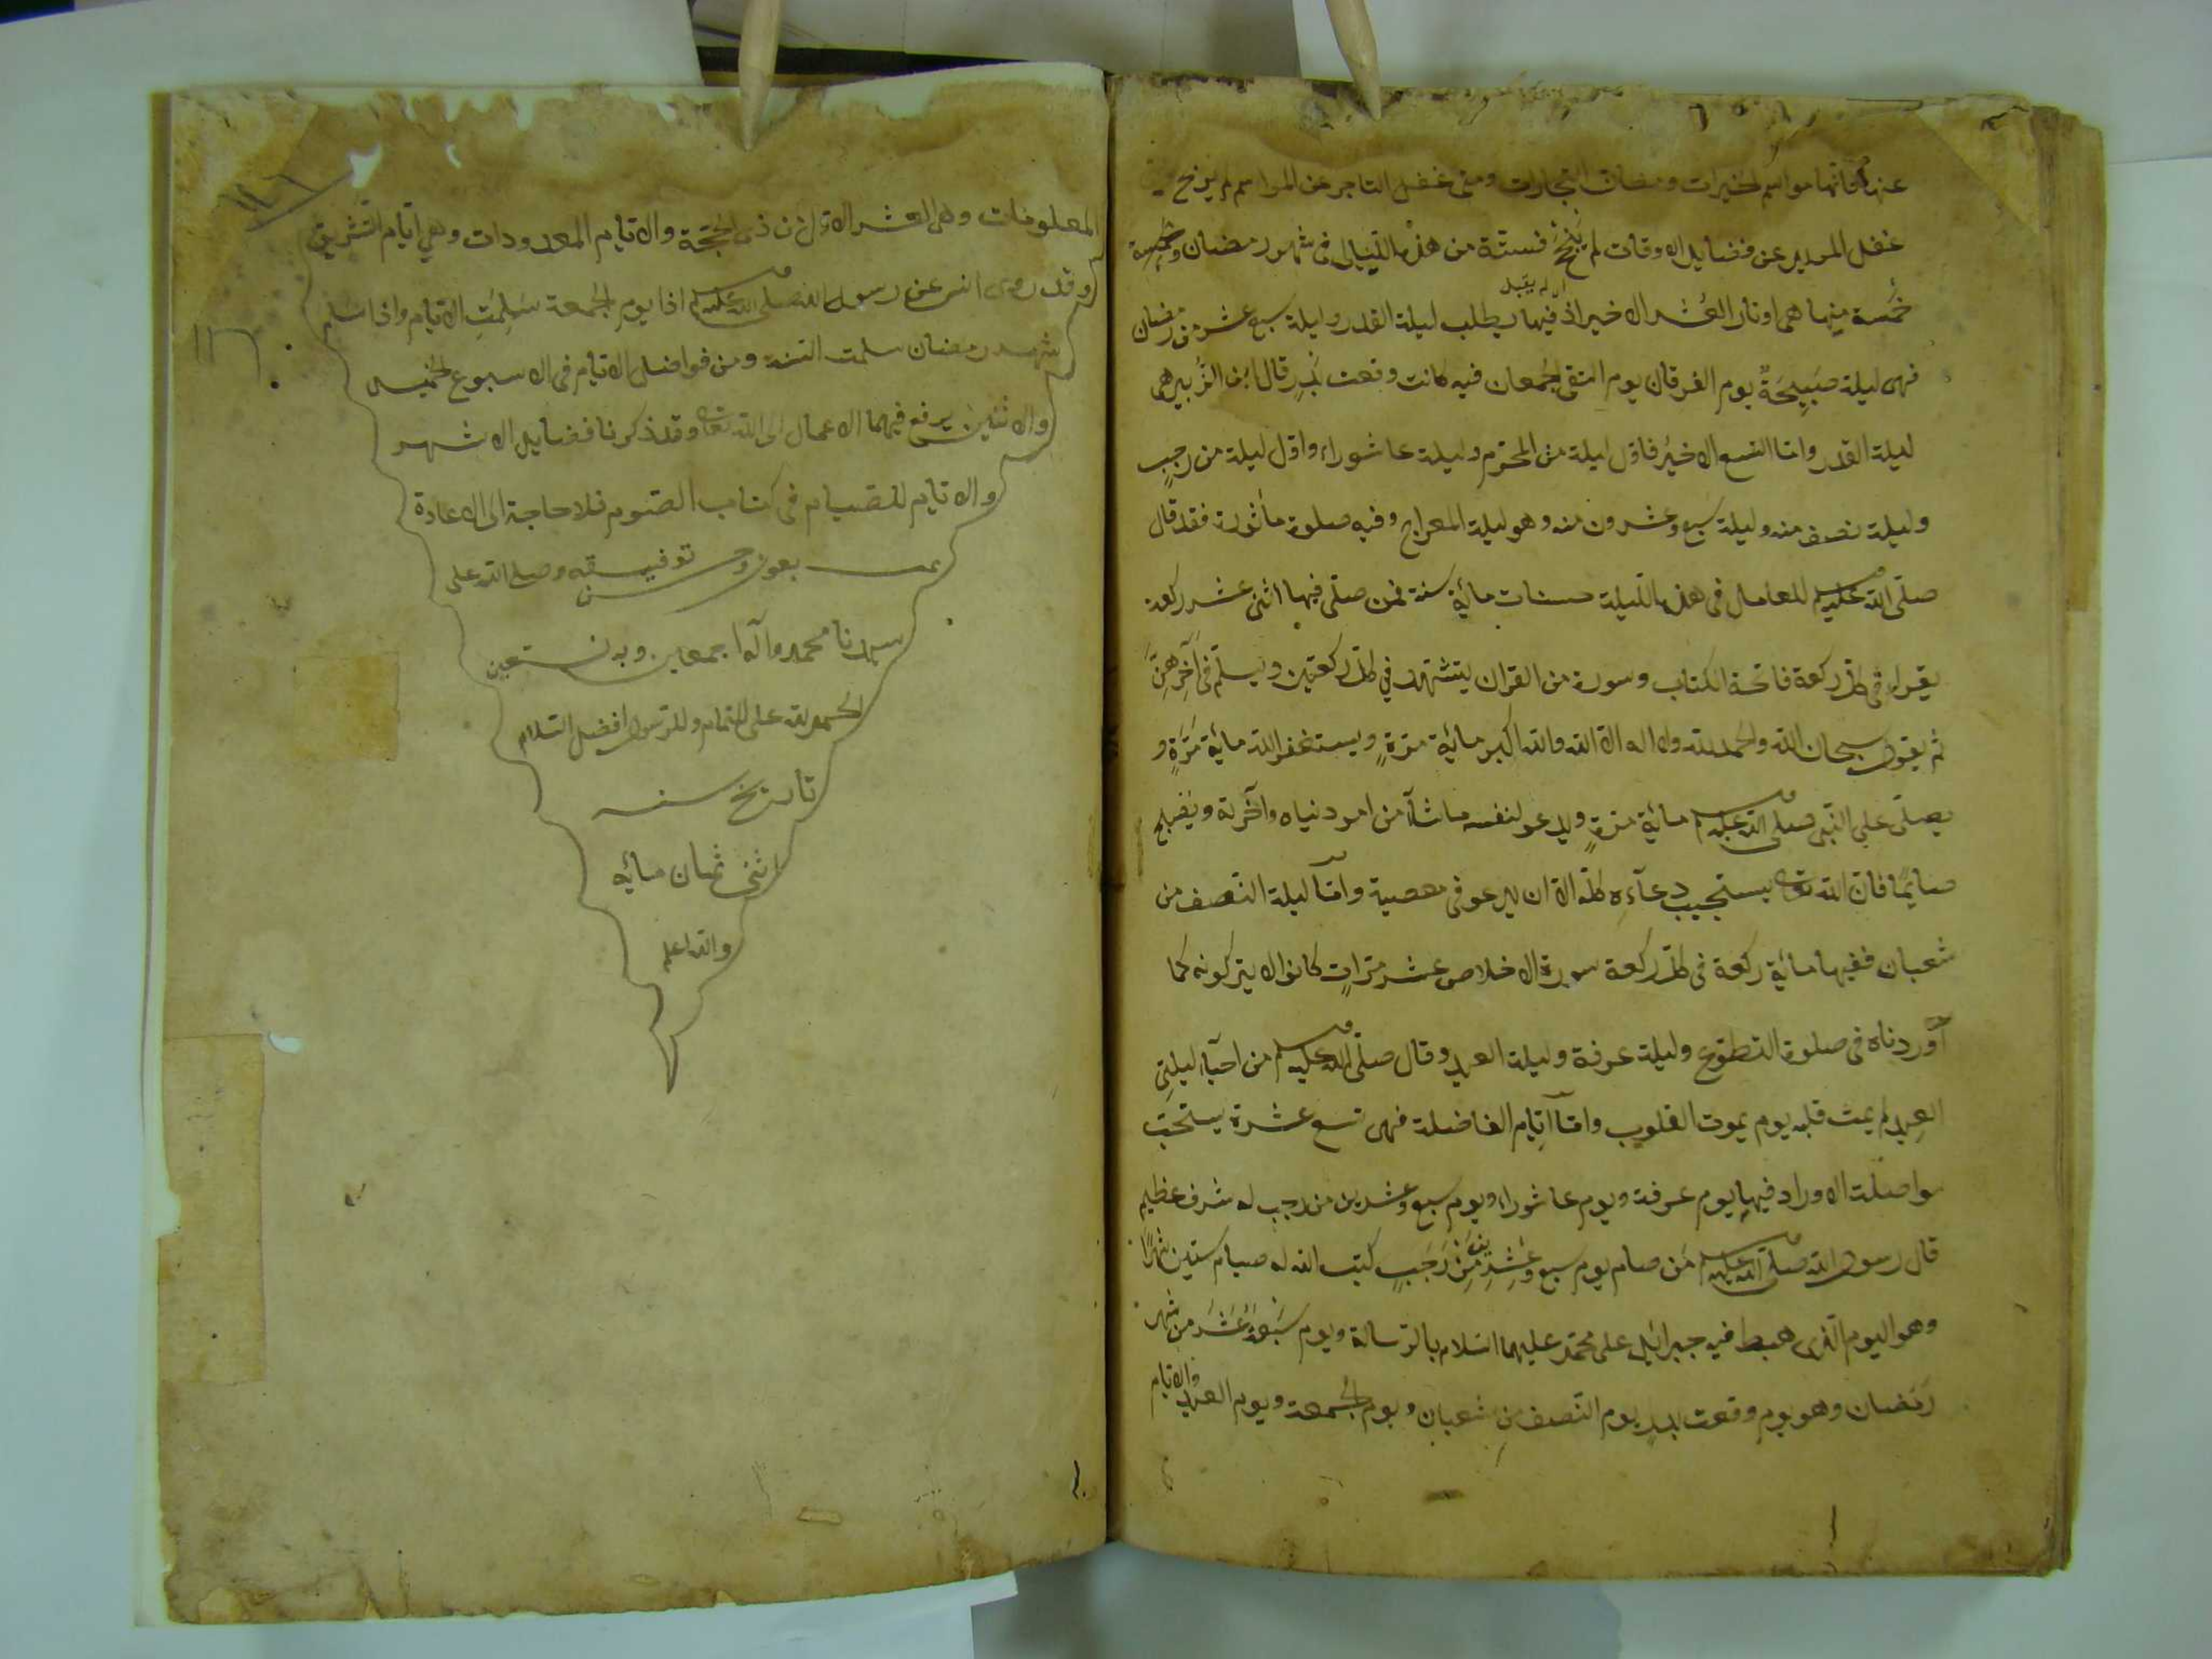 عنها فانها مواسم الخيرات ومضان التجارات ومتى غفل التاجر عن المواسم لم يربح
غفل المريد عن فضايل الاوقات لم ينجح فستة من هذه الليالى فى شهر رمضان
خمسة منها هى اوتار العشر الاخير اذ فيها يطلب ليلة القدر وليلة سبع عشر من رمضان
فهى ليلة صبيحة يوم الفرقان يوم التقى الجمعان فيه كانت وقعت بدر قال ابن الزبير هى
ليلة القدر واما التسع الاخير فاول ليلة من المحرم وليلة عاشوراء واول ليلة من رجب
وليلة نصف منه وليلة سبع وعشرون منه وهو ليلة المعراج وفيه صلوة ماثورة فقد قال
صلى الله عليه وسلم للعامل فى هذه الليلة حسنات مائة سنة فمن صلى فيها اثنى عشر ركعة
يقراء فى كل ركعة فاتحة الكتاب وسورة من القران ليتشهد في كل ركعتين ويسلم فى آخرهن
ثم يقول سبحان الله والحمد لله ولا اله الا الله والله اكبر مائة مرة ويستغفر الله مائة مرة و
يصلى على النبى صلى الله عليه وسلم مائة مرة ويدعو لنفسه ما شآء من امر دنياه وآخرته ويصبح
صايما فان الله تعالى يستجيب دعآءه كله الا ان يدعو فى معصية واما ليلة النصف من
شعبان ففيها مائة ركعة فى كل ركعة سورة الاخلاص عشر مرات كانوا لا يتركونه كما
اوردناه فى صلوة التطوع وليلة عرفة وليلة العيد وقال صلى الله عليه وسلم من احيآء ليلتى
العيد لم يمت قلبه يوم يموت القلوب واما آيام الفاضلة فهى تسع عشرة يستحب
مواصلة الاوراد فيها يوم عرفة ويوم عاشوراء ويوم سبع وعشرين من رجب له شرف عظيم
قال رسول الله صلى الله عليه وسلم من صام يوم سبع وعشرين من رجب كتب الله له صيام ستين شهرا
وهو اليوم الذى هبط فيه جبرائيل على محمد عليهما السلام بالرسالة ويوم سبعة عشر من شهر
رمضان وهو يوم وقعت بدر يوم النصف من شعبان ويوم الجمعة ويوم العيد والايام
المعلومات وهى العشر الاول من ذى الحجة والايام المعدودات وهي ايام التشريق
وقد روى انس عن رسول الله صلى الله عليه وسلم اذا يوم الجمعة سلمت الايام واذا سلم
شهر رمضان سلمت السنة ومن فواضل الايام فى الاسبوع الخميس
والاثنين يرفع فيهما الاعمال الى الله تعالى وقد ذكرنا فضايل الاشهر
والايام للصيام فى كتاب الصوم فلا حاجة الى الاعادة
تمت بعون وحسن توفيقه وصلى الله على
سيدنا محمد وآله اجمعين وبه نستعين
الحمد لله على التمام وللرسول افضل السلام
تاريخ سنه
اثنى ثمان مائه
والله اعلم